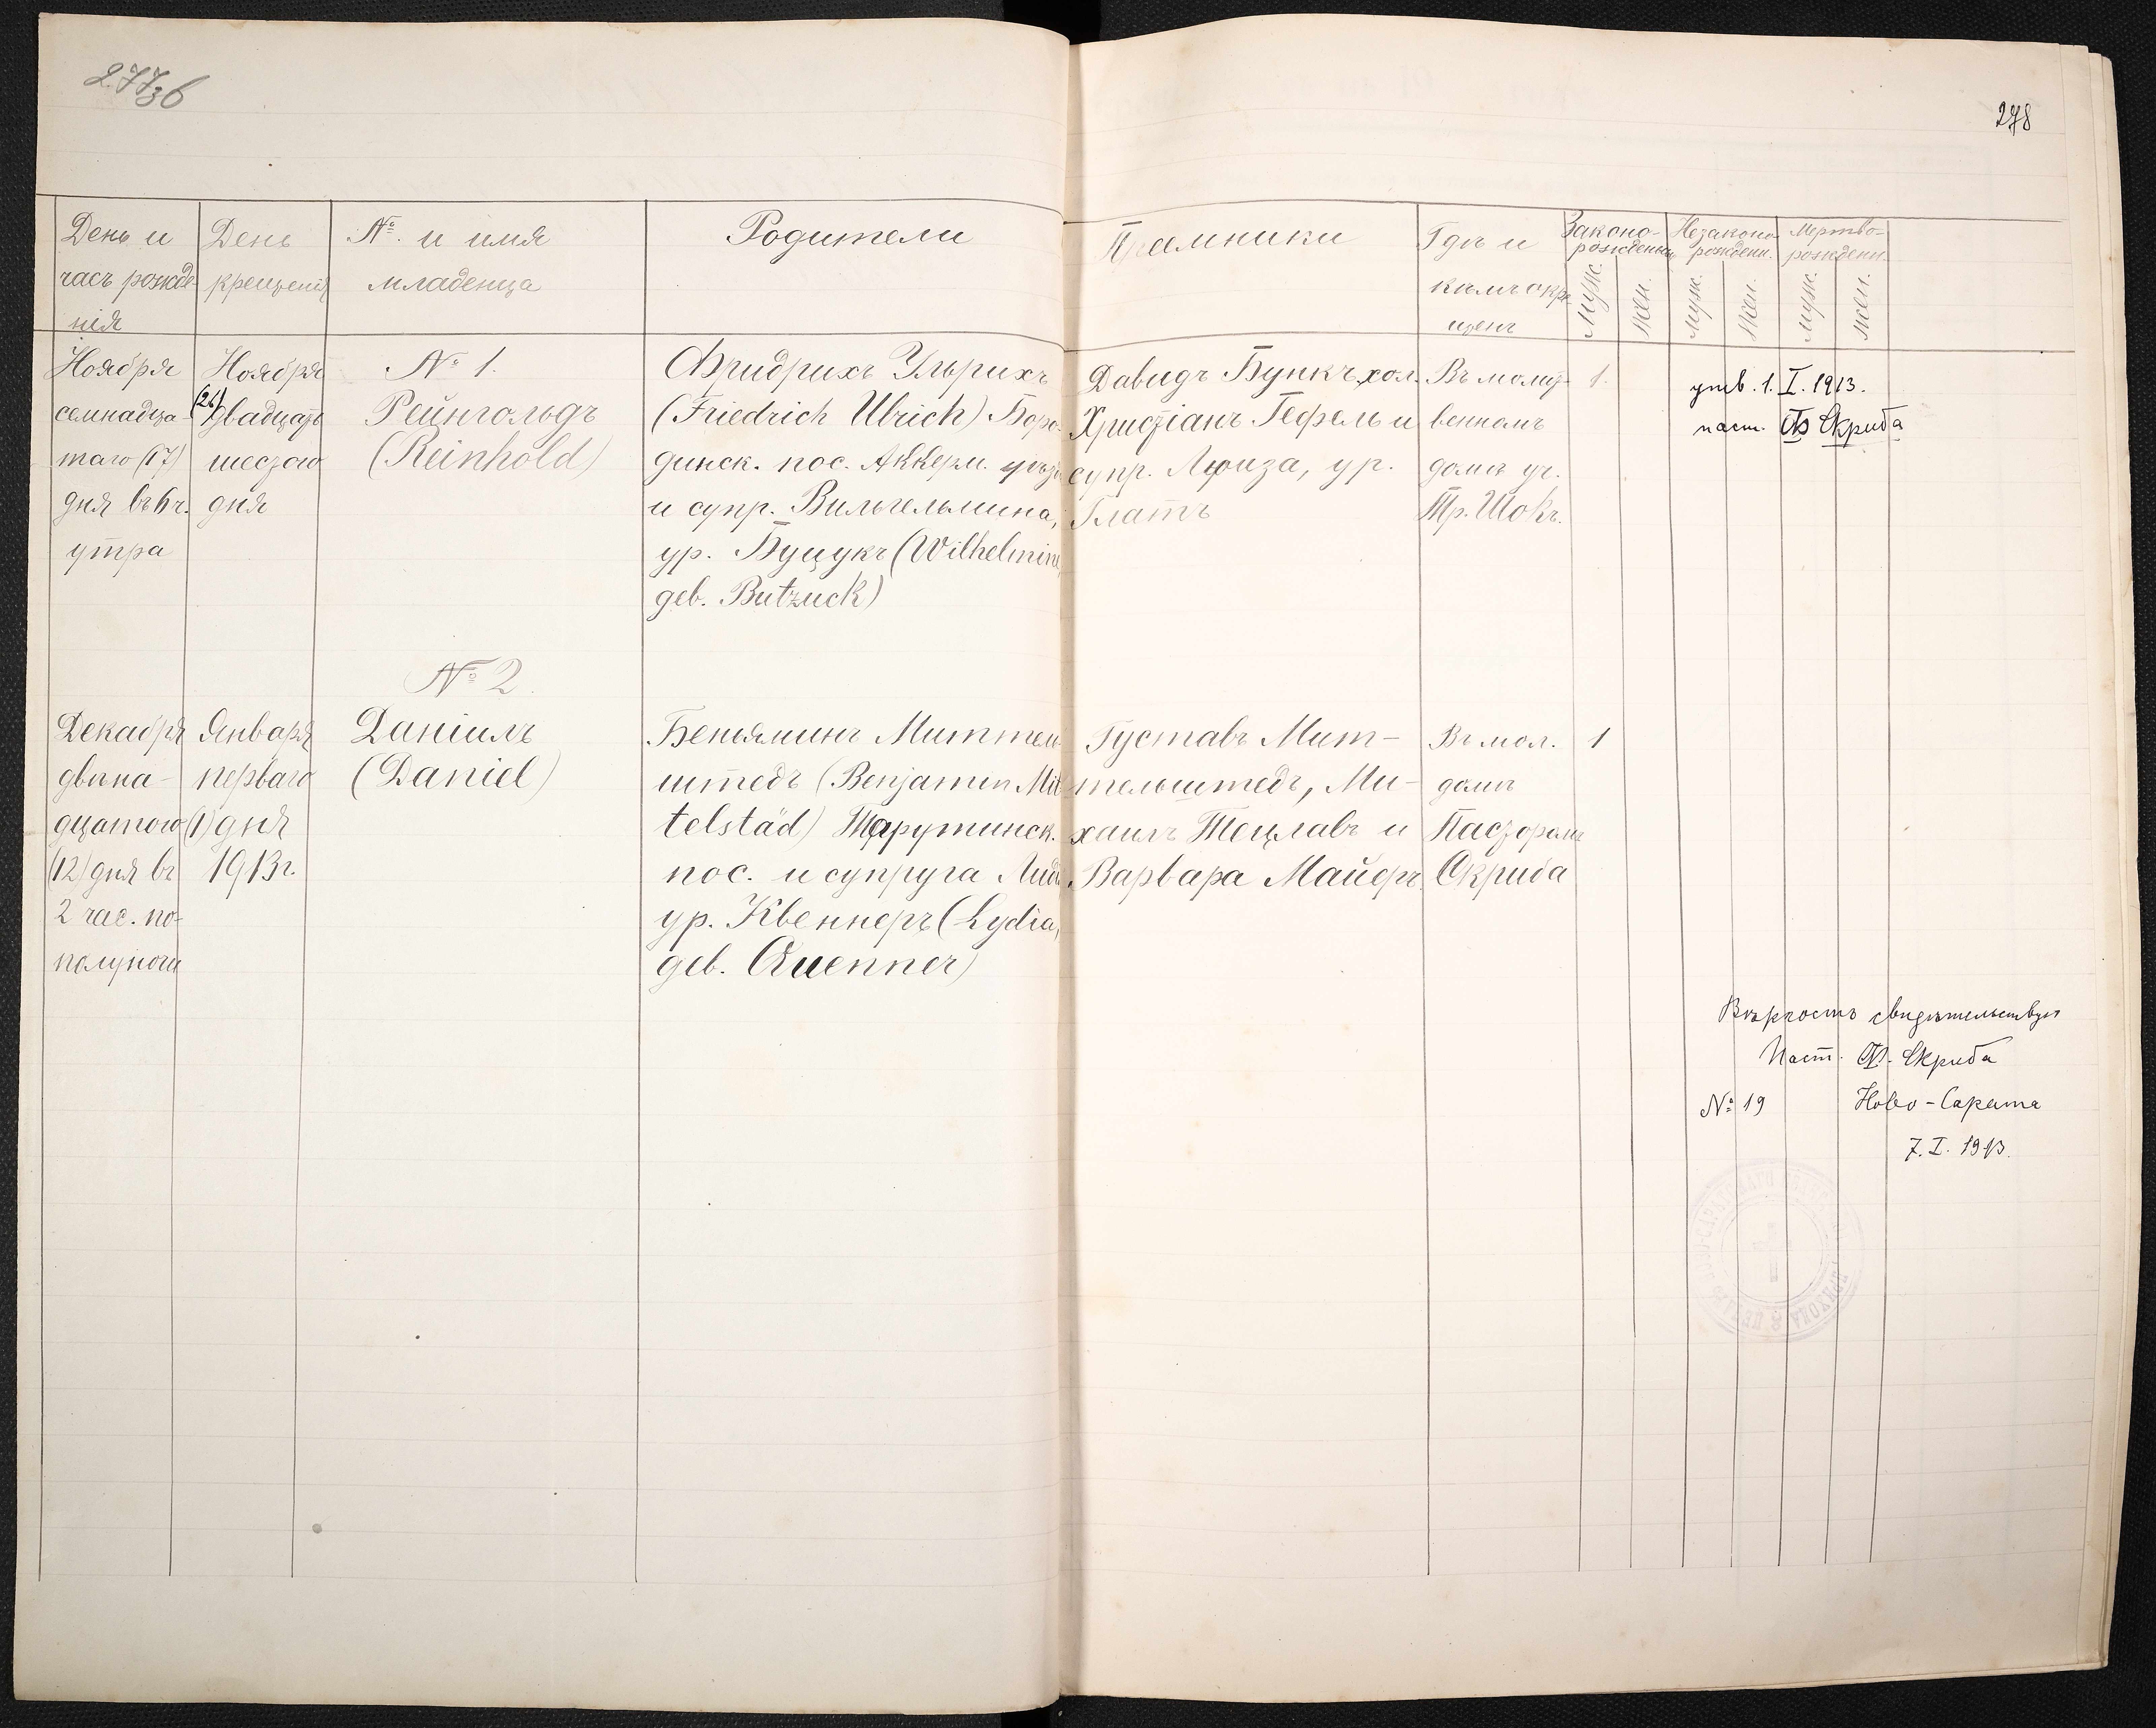 277 36
278
День и
часъ рожде-
нія
День
крещенія
№. и имя
младенца
Родители
Пріемники
Гдѣ и
кѣмъ окре-
щенъ
Законо-
рожденн.
Незаконо-
рожденн.
Мертво-
рожденн.
муж.
жен.
муж.
жен.
муж.
жен.
Ноября
семнадца-
таго (17)
дня въ 6 ч.
утра
Ноября
(26) двадцать
шестого
дня
№ 1.
Рейнгольдъ
(Reinhold)
Фридрихъ Ульрихъ
(Friedrich Ulrich) Боро-
динск. пос. Аккерм. уѣзда
и супр. Вильгельмина,
ур. Буцукъ (Wilhelmine,
geb. Butzuck)
Давидъ Бункъ, хол.
Христіанъ Гефель и
супр. Луиза, ур.
Глатъ
Въ молит-
венномъ
домѣ уч.
Тр. Шокъ.
1.
утв. 1. I. 1913.
паст. Ѳ Скриба
№ 2
Декабря
двѣна-
дцатого
(12) дня въ
2 час. по-
полуночи
Января
перваго
(1) дня
1913 г.
Даніилъ
(Daniel)
Беньяминъ Миттель-
штедъ (Benjamin Mit-
telstäd) Тарутинск.
пос. и супруга Лидія
ур. Квеннеръ (Lydia,
geb. Quenner)
Густавъ Мит-
тельштедъ, Ми-
хаилъ Тецлавъ и
Варвара Майеръ.
Въ мол.
домѣ
Пасторомъ
Скриба
1
Вѣрность свидѣтельствую
Паст. Ѳ. Скриба
№ 19 Ново-Сарата
7. I. 1913.